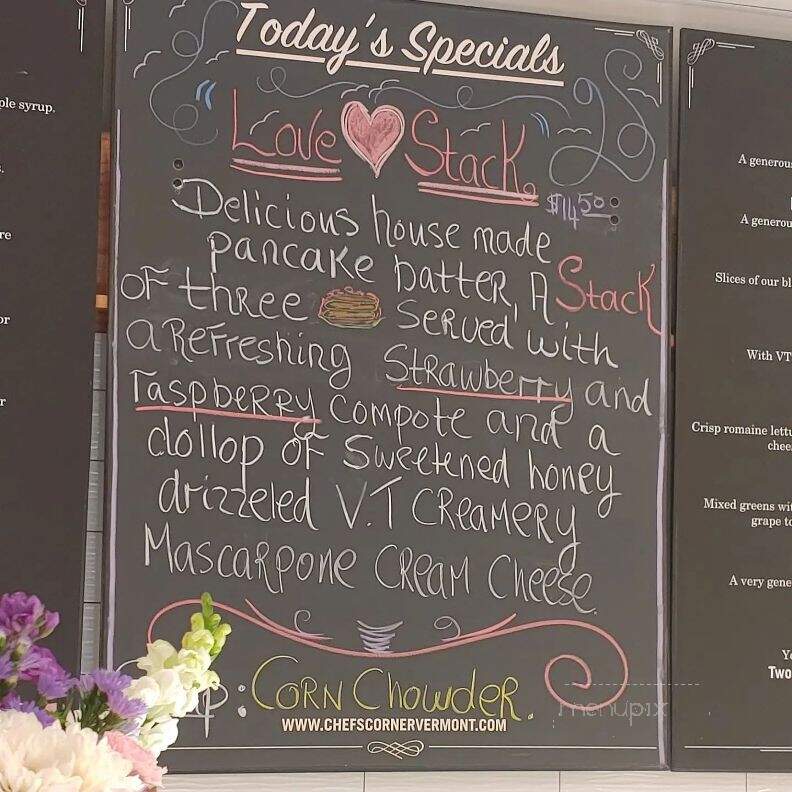 Today's Specials
"Love Stack"
$14.50
Delicious house made
pancake batter, A Stack
of three served with
a refreshing Strawberry and
raspberry compote and a
dollop of sweetened honey
drizzeled V.T Creamery
Mascarpone Cream Cheese.
: Corn Chowder.
WWW.CHEFSCORNERVERMONT.COM
menupix
ple syrup.
re
or
r
A generous
A generou
Slices of our bl
With VT
Crisp romaine lettu
chee
Mixed greens wit
grape to
A very gene
Two